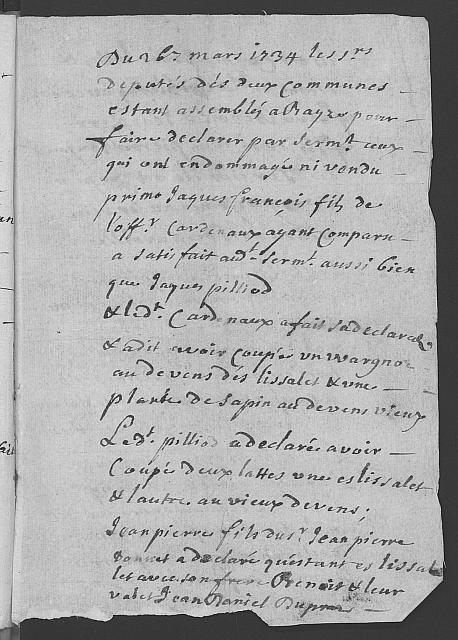 Du 26e mars 1734 les srs
deputés dés deux communes
estant assemblés a Rayze pour
faire declarer par serm.t ceux
qui ont endommagé ni vendu
primo Jaques françois fils de
l'off.r Cardenaux ayant comparu
a satisfait aud.t serm.t aussi bien
que Jaques pilliod
& led.t Cardenaux a fait sa declara.on
& a dit avoir coupée un wargne
au devens dés lissalet & une
plante de sapin au devens vieux
Led.t pilliod a declaré avoir
Coupé deux lattes une es lissalet
& l'autre au vieux devens;
Jean pierre fils du s.r Jean pierre
a declaré qu'estant es lissal
let avec son frere Benoit & leur
valet Jean Daniel